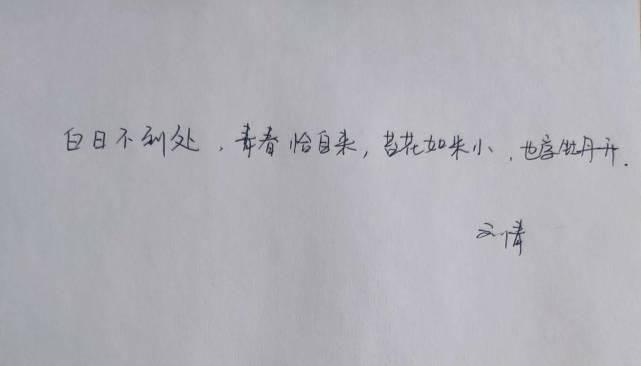 白日不到处，青春恰自来，苔花如米小，也学牡丹开.
文情